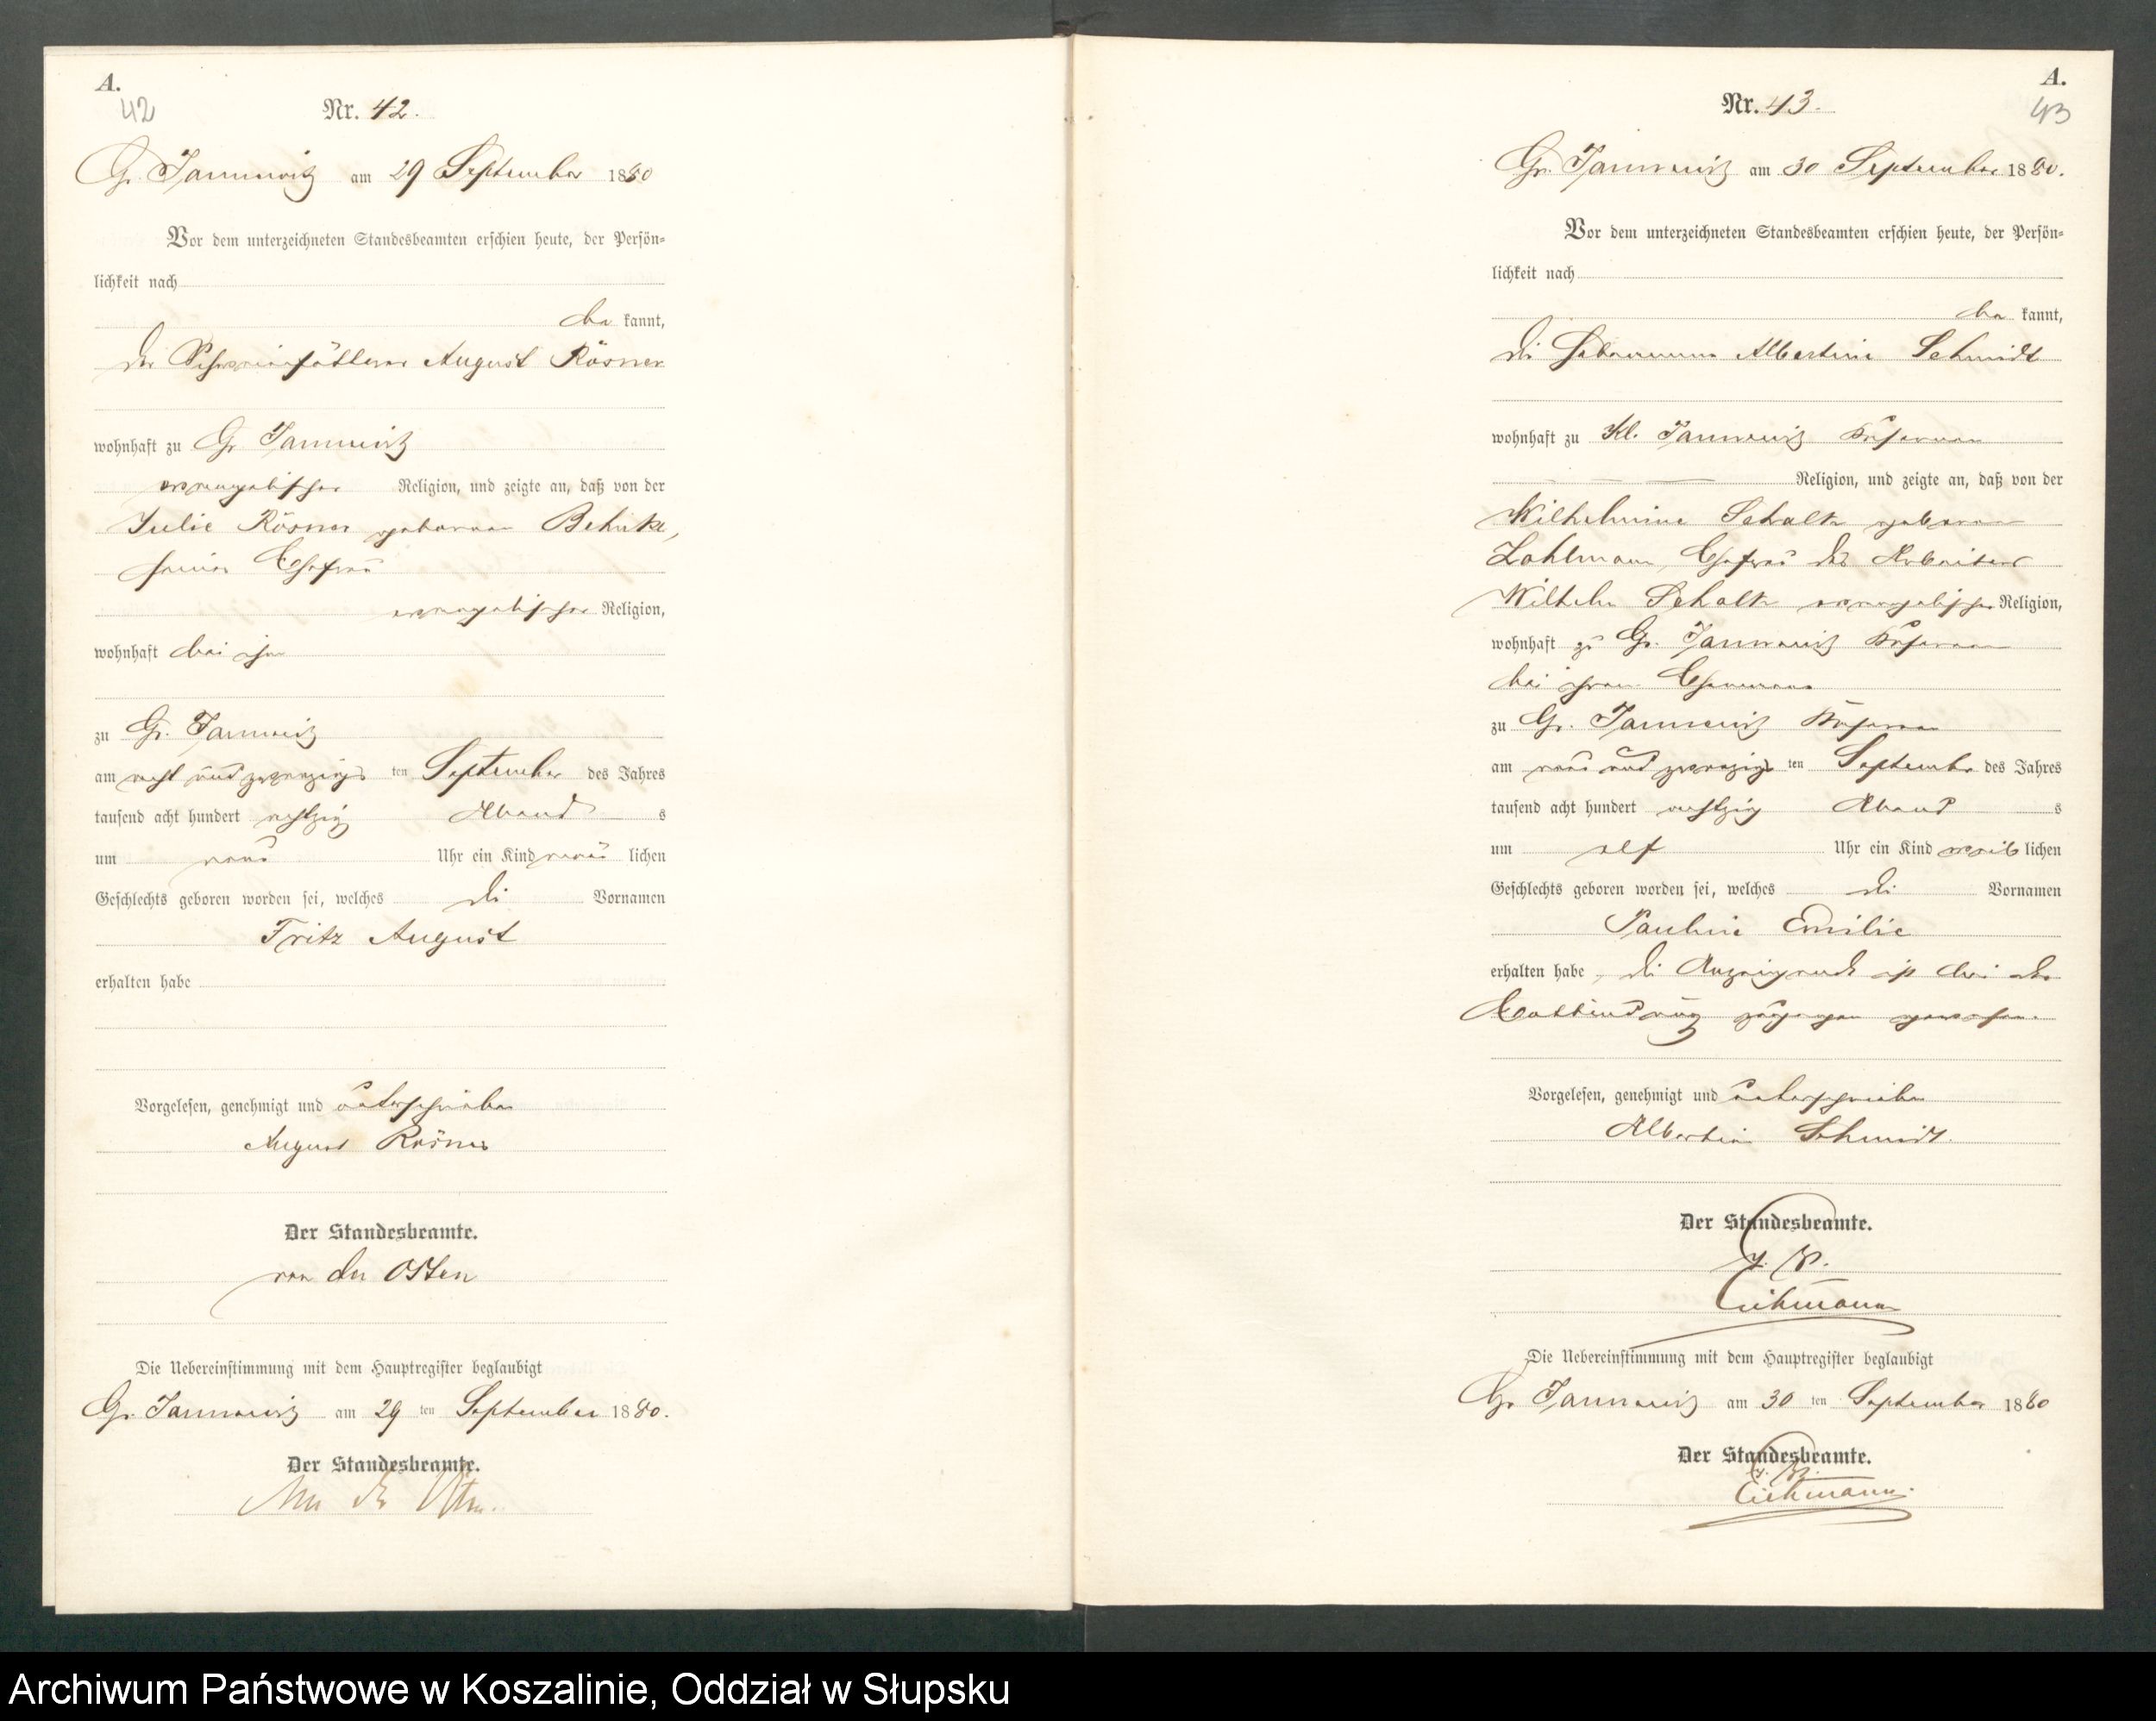 A.
42
Nr. 42.
Gr. Jannewitz am 29 September 1880
Vor dem unterzeichneten Standesbeamten erschien heute, der Persön-
lichkeit nach
be kannt,
der August Rösner
wohnhaft zu Gr. Jannewitz
evangelischer Religion, und zeigte an, daß von der
Julie Rösner geborene Behnke,
seiner Ehefrau
evangelischer Religion,
wohnhaft bei ihm
zu Gr. Jannewitz
am acht und zwanzigs ten September des Jahres
tausend acht hundert achtzig Abend s
um neun Uhr ein Kind männ lichen
Geschlechts geboren worden sei, welches die Vornamen
Fritz August
erhalten habe
Vorgelesen, genehmigt und unterschrieben
August Rösner
Der Standesbeamte.
von der Osten
Die Uebereinstimmung mit dem Hauptregister beglaubigt
Gr. Jannewitz am 29 ten September 1880.
Der Standesbeamte.
von der Osten.
A.
43
Nr. 43.
Gr. Jannewitz am 30 September 1880.
Vor dem unterzeichneten Standesbeamten erschien heute, der Persön-
lichkeit nach
be kannt,
die Hebamme Albertine Schmidt
wohnhaft zu Kl. Jannewitz
Religion, und zeigte an, daß von der
Wilhelmine Scholtz geborene
Ehefrau des Arbeiters
Wilhelm Scholtz evangelischer Religion,
wohnhaft zu Gr. Jannewitz
bei ihrem Ehemann
zu Gr. Jannewitz
am neun und zwanzigs ten September des Jahres
tausend acht hundert achtzig Abend s
um elf Uhr ein Kind weib lichen
Geschlechts geboren worden sei, welches die Vornamen
Pauline Emilie
erhalten habe, die Anzeigende ist bei der
Entbindung zugegen gewesen.
Vorgelesen, genehmigt und unterschrieben
Albertine Schmidt.
Der Standesbeamte.
J. V.
Eickmann
Die Uebereinstimmung mit dem Hauptregister beglaubigt
Gr. Jannewitz am 30 ten September 1880
Der Standesbeamte.
J. V.
Eickmann.
Archiwum Państwowe w Koszalinie, Oddział w Słupsku